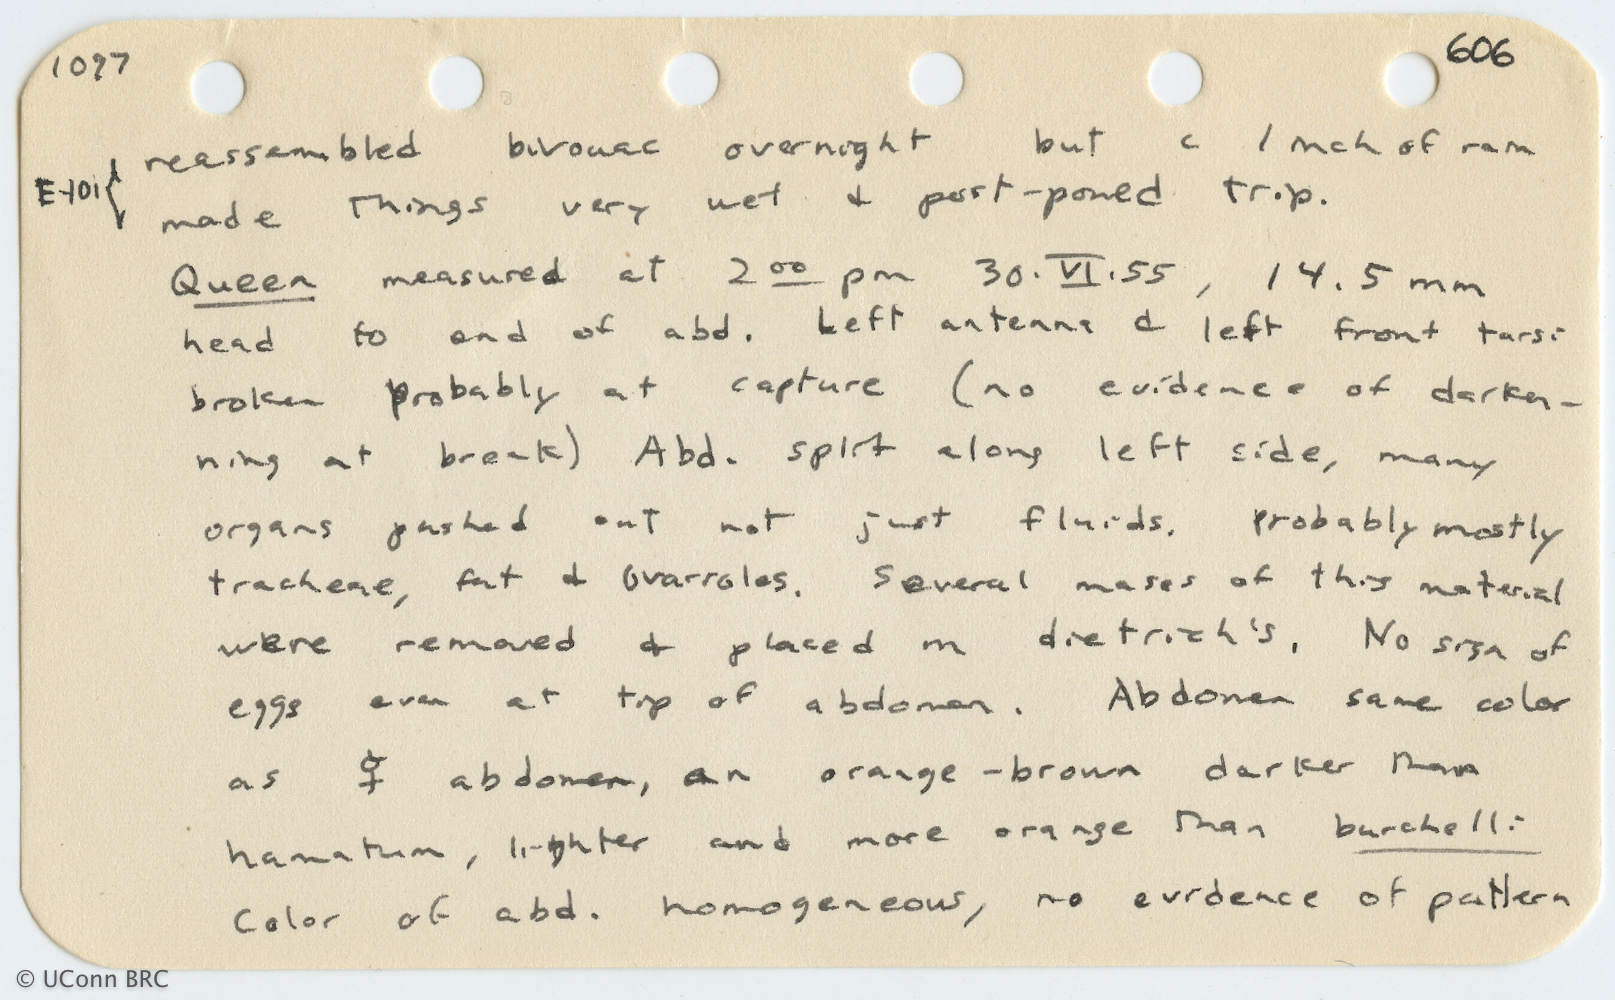 1097
606
E-101 { reassembled bivouac overnight but c 1 inch of rain
made things very wet & post-poned trip.
Queen measured at 2 00 pm 30.VI.55, 14.5 mm
head to end of abd. Left antenna & left front tarsi
broken probably at capture (no evidence of darken-
ning at break) Abd. split along left side, many
organs pushed out not just fluids. Probably mostly
tracheae, fat & Ovarioles. Several mases of this material
were removed & placed in dietrich's. No sign of
eggs even at tip of abdomen. Abdomen same color
as ☿ abdomen, an orange-brown darker than
hamatum, lighter and more orange than burchelli
Color of abd. homogeneous, no evidence of pattern
© UConn BRC